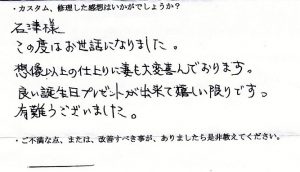 ・カスタム、修理した感想はいかがでしょうか?
石津様
この度はお世話になりました。
想像以上の仕上りに妻も大変喜んでおります。
良い誕生日プレゼントが出来て嬉しい限りです。
有難うございました。
・ご不満な点、または、改善すべき事が、ありましたら是非教えてください。